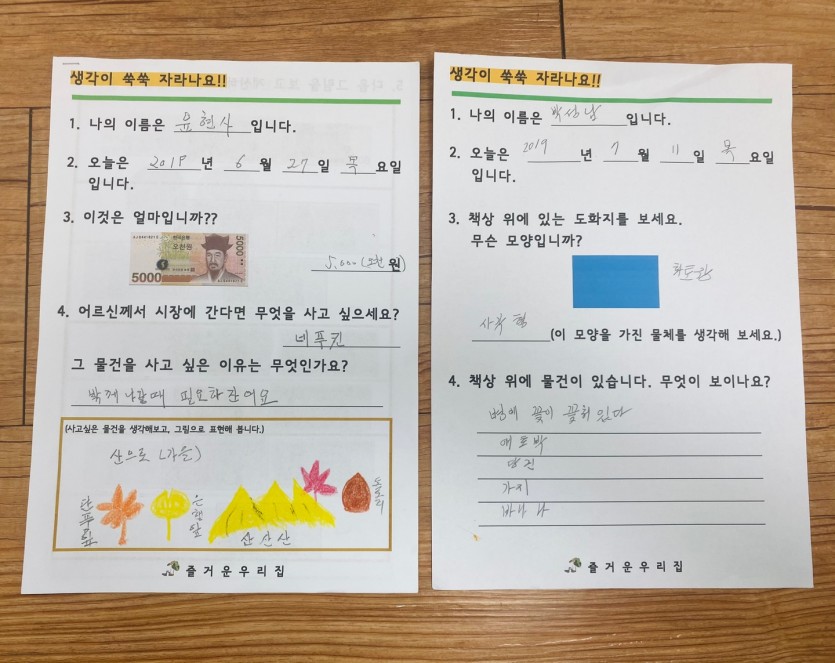 생각이 쑥쑥 자라나요!!
1. 나의 이름은 윤현사 입니다.
2. 오늘은 2019 년 6 월 27 일 목 요일
입니다.
3. 이것은 얼마입니까??
오천원
5000
5000
5,000 (오천 원)
4. 어르신께서 시장에 간다면 무엇을 사고 싶으세요?
네푸킨
그 물건을 사고 싶은 이유는 무엇인가요?
밖께 나갈때 필요하잔어요
(사고싶은 물건을 생각해보고, 그림으로 표현해 봅니다.)
산으로 (가을)
단풍잎
은행잎
산 산 산
도토리
즐거운우리집
생각이 쑥쑥 자라나요!!
1. 나의 이름은 박성남 입니다.
2. 오늘은 2019 년 7 월 11 일 목 요일
입니다.
3. 책상 위에 있는 도화지를 보세요.
무슨 모양입니까?
파란
사각형 (이 모양을 가진 물체를 생각해 보세요.)
4. 책상 위에 물건이 있습니다. 무엇이 보이나요?
병에 꽃이 꽂혀 있다
애호박
당근
가지
바나나
즐거운우리집